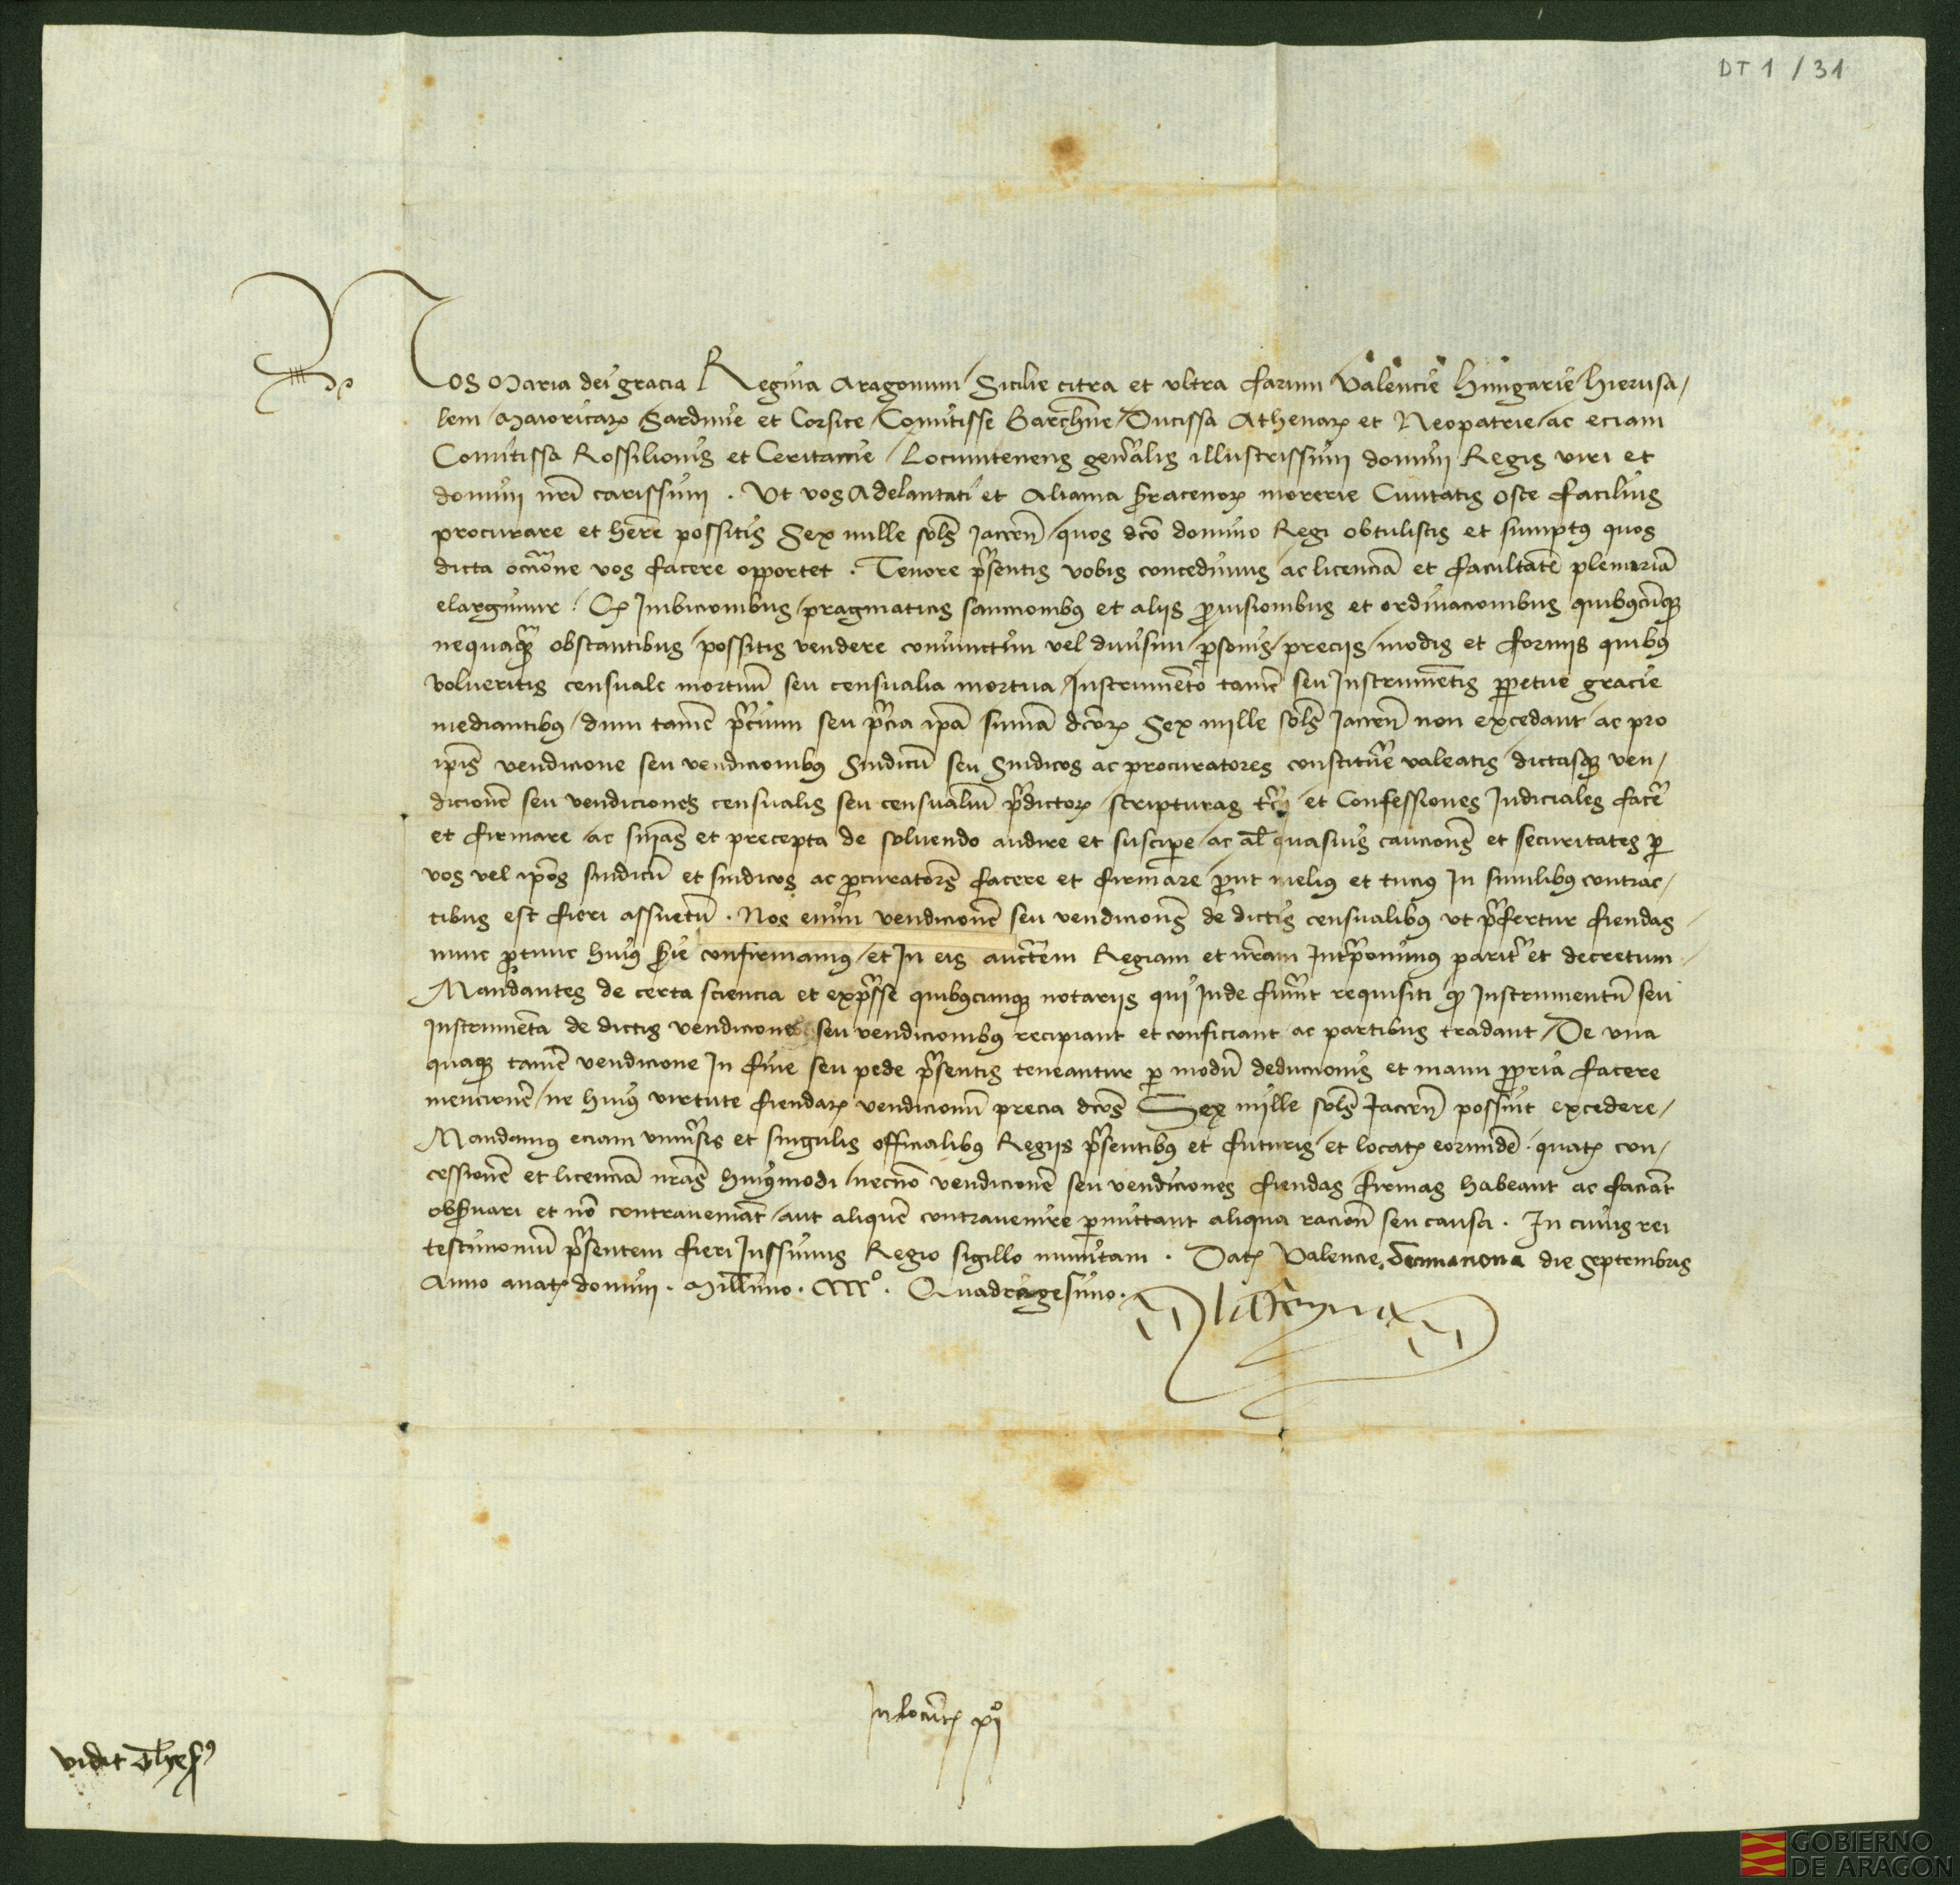 DT 1 / 31
Nos Maria dei gracia Regina Aragonum Sicilie citra et ultra farum Valencie Hungarie Hierusa/
lem Maioricarꝝ Sardinie et Corsice Comitisse Barchn̄e Ducissa Athenarꝝ et Neopatrie ac eciam
Comitissa Rossilionis et Ceritanie Locumtenens gen̄alis illustrissimi domini Regis viri et
domini nr̄i carissimi . Ut vos Adelantati et Aliama sarracenorꝝ morerie Civitatis Osce facilius
procurare et her̄e possitis Sex mille sol̄s Jaccen̄ quos dc̄o domino Regi obtulistis et sumptꝰ quos
dicta occ̄one vos facere opportet . Tenore p̄sentis vobis concedimus ac licenciā et facultatē plenariā
elargimur . Qꝫ Inhicionibus / pragmaticis sanccionibꝰ et aliis ꝓvisionibus et ordinacionibus quibꝰcūqꝫ
nequaqꝫ obstantibus / possitis vendere coniunctim vel divisim ꝑsonis / preciis / modis et formis quibꝰ
volueritis censuale mortuū seu censualia mortua / Instrumēto tamē seu Instrumētis ꝑpetue gracie
mediantibꝰ / dum tamē p̄cium seu p̄cia ip̄a sūmā dc̄orꝝ Sex mille sol̄s Jaccen̄ non excedant / ac pro
ip̄is vendicione seu vendicionibꝰ Sindicū seu Sindicos ac procuratores constitūe valeatis dictasqꝫ ven/
dicionē seu vendiciones censualis seu censualiū p̄dictorꝝ / scripturas et Confessiones Judiciales facē
et firmare ac sn̄ias et precepta de solvendo audire et suscipe / ac al̄ quasvis caucionēs et securitates ꝑ
vos vel ip̄os sindicū et sindicos ac ꝓcuratorēs facere et firmare ꝓut melius et tucius In similibꝰ contrac/
tibus est fieri assuetū . Nos enim vendicionē seu vendicionēs de dictis censualibꝰ ut p̄fertur fiendas
nunc ꝓtunc huiꝰ s̄ie confirmamus / et In eis auctc̄tem Regiam et nr̄am Int̄ponimus paritēr et decretum
Mandantes de certa sciencia et exp̄sse quibꝰcumqꝫ notariis qui Inde fuer̄nt requisiti qꝫ Instrumentū seu
Instrumēta de dictis vendicione seu vendicionibꝰ recipiant et conficiant ac partibus tradant / De una
quaqꝫ tamē vendicione In fine seu pede p̄sentis teneantur ꝑ modū deduccionis et manu ꝓpria facere
mencionē / ne huiꝰ virtute fiendarꝝ vendicionū precia dc̄os Sex mille sol̄s Jaccen̄ possint excedere /
Mandamus eciam univ̄sis et singulis officialibus Regiis p̄sentibꝰ et futuris et locatꝝ eorumdē . quatꝝ con/
cessionē et licenciā nr̄as huiꝰmodi / necnō vendicionē seu vendiciones fiendas firmas habeant ac faciāt
obs̄vari et nō contraveniāt / aut aliquē contravenire ꝑmittant aliqua racion̄ seu causa . In cuius rei
testimoniū p̄sentem fieri Jussimus Regio sigillo munitam . Datꝝ Valencie decimanona die Septembris
Anno a natꝝ domini . Millēmo . CCCCᵒ . Quadragesimo .
In locūtꝝ pⁱ
vidit Thesꝰ
GOBIERNO
DE ARAGON